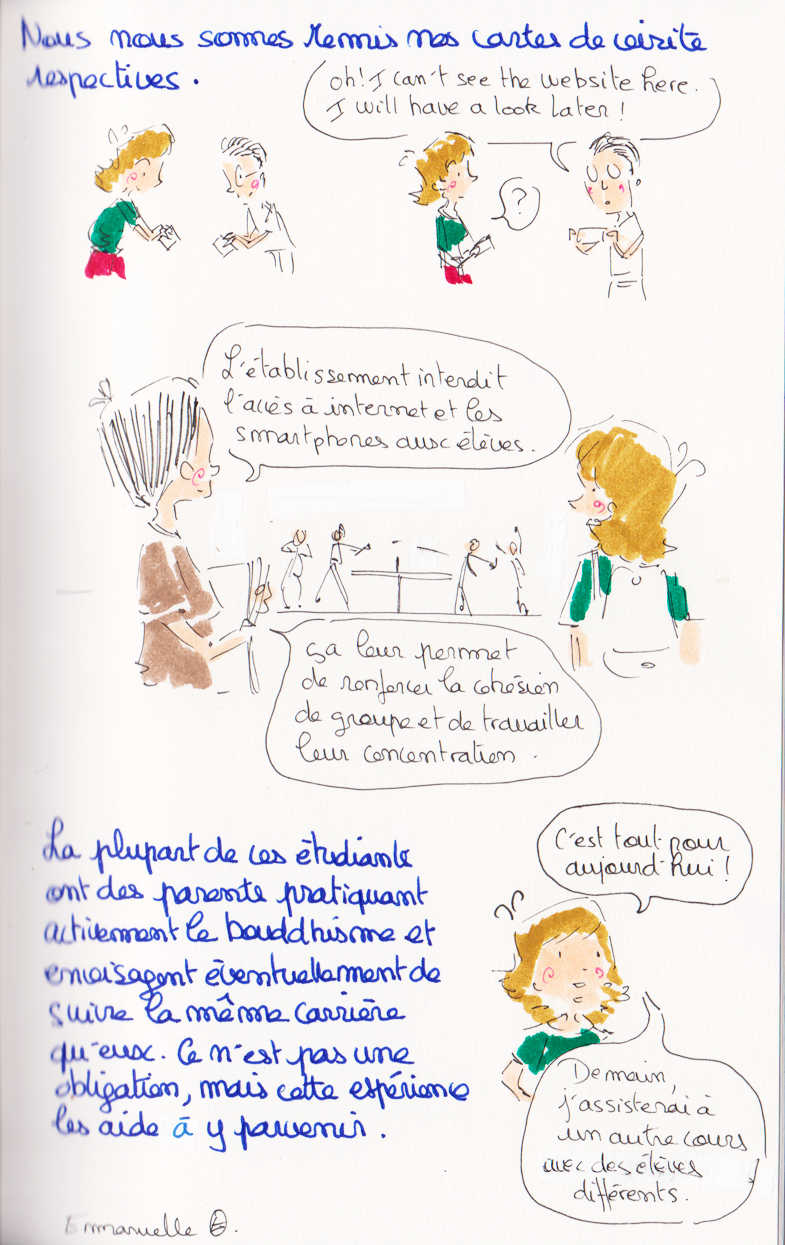 Nous nous sommes remis nos cartes de visite
respectives.
oh! I can't see the website here.
I will have a look later!
?
L'établissement interdit
l'accès à internet et les
smartphones aux élèves.
ça leur permet
de renforcer la cohésion
de groupe et de travailler
leur concentration.
La plupart de ces étudiants
ont des parents pratiquant
activement le bouddhisme et
envisagent éventuellement de
suivre la même carrière
qu'eux. Ce n'est pas une
obligation, mais cette expérience
les aide à y parvenir.
C'est tout pour
aujourd'hui!
Demain,
j'assisterai à
un autre cours
avec des élèves
différents.
Emmanuelle